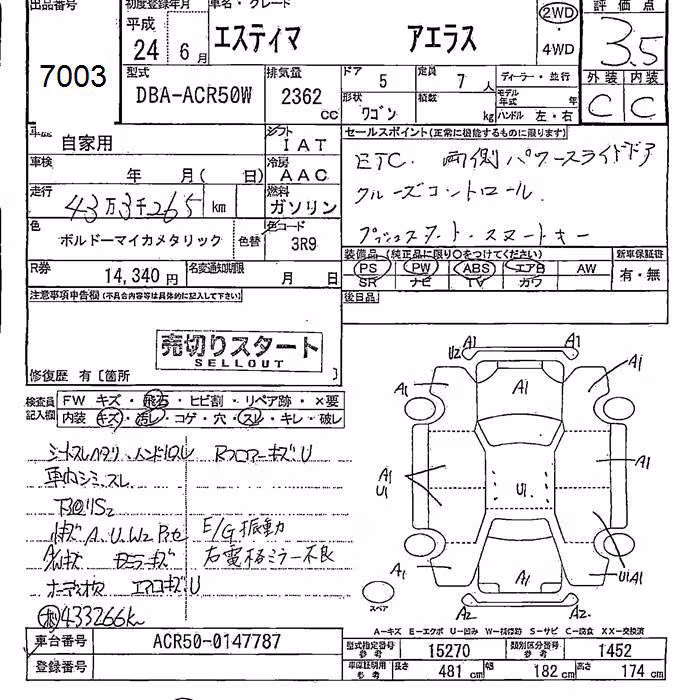 出品番号 初度登録年月 車名・グレード 評価点
7003 平成 24 6月 エスティマ アエラス 2WD ・ 4WD 3.5
型式 排気量 ドア 5 定員 7人 ディーラー・並行 外装 内装
DBA-ACR50W 2362 cc 形状 ワゴン 積載 kg モデル年式 年 ハンドル 左・右 C C
自家用 シフト IAT セールスポイント(正常に機能するものに限ります)
車検 年 月( 日) 冷房 AAC ETC. 両側パワースライドドア
走行 43万3千265 km 燃料 ガソリン クルーズコントロール.
色 ボルドーマイカメタリック 色替 色コード 3R9 プッシュスタート・スマートキー
装備品 (純正品に限り○をつけてください) 新車保証書
R券 14,340円 名変通知期限 月 日 PS PW ABS エアB AW 有・無
SR ナビ TV カワ
注意事項申告欄(不具合内容等は具体的に記入して下さい) 後日品
売切りスタート
SELLOUT
修復歴 有〔箇所 〕
検査員記入欄 FW キズ・飛石・ヒビ割・リペア跡・×要
内装 キズ・汚レ・コゲ・穴・スレ・キレ・破レ
シートスレヘタリ ハンドルスレ RフロアーキズU
車内シミ.スレ
下回りS2
A.U.W2 E/G振動
右電格ミラー不良
エアロキズU
433266km
U2 A1 A1
A1 A1 A1
A1 U1 U1 A1
A1 A1 U1A1
スペア A2 A2
A-キズ E-エクボ U-凹み W-補修跡 S-サビ C-腐食 XX-交換済
車台番号 ACR50-0147787 型式指定番号 参考 15270 類別区分番号 参考 1452
登録番号 車庫証明用 参考 長さ 481 cm 幅 182 cm 高さ 174 cm